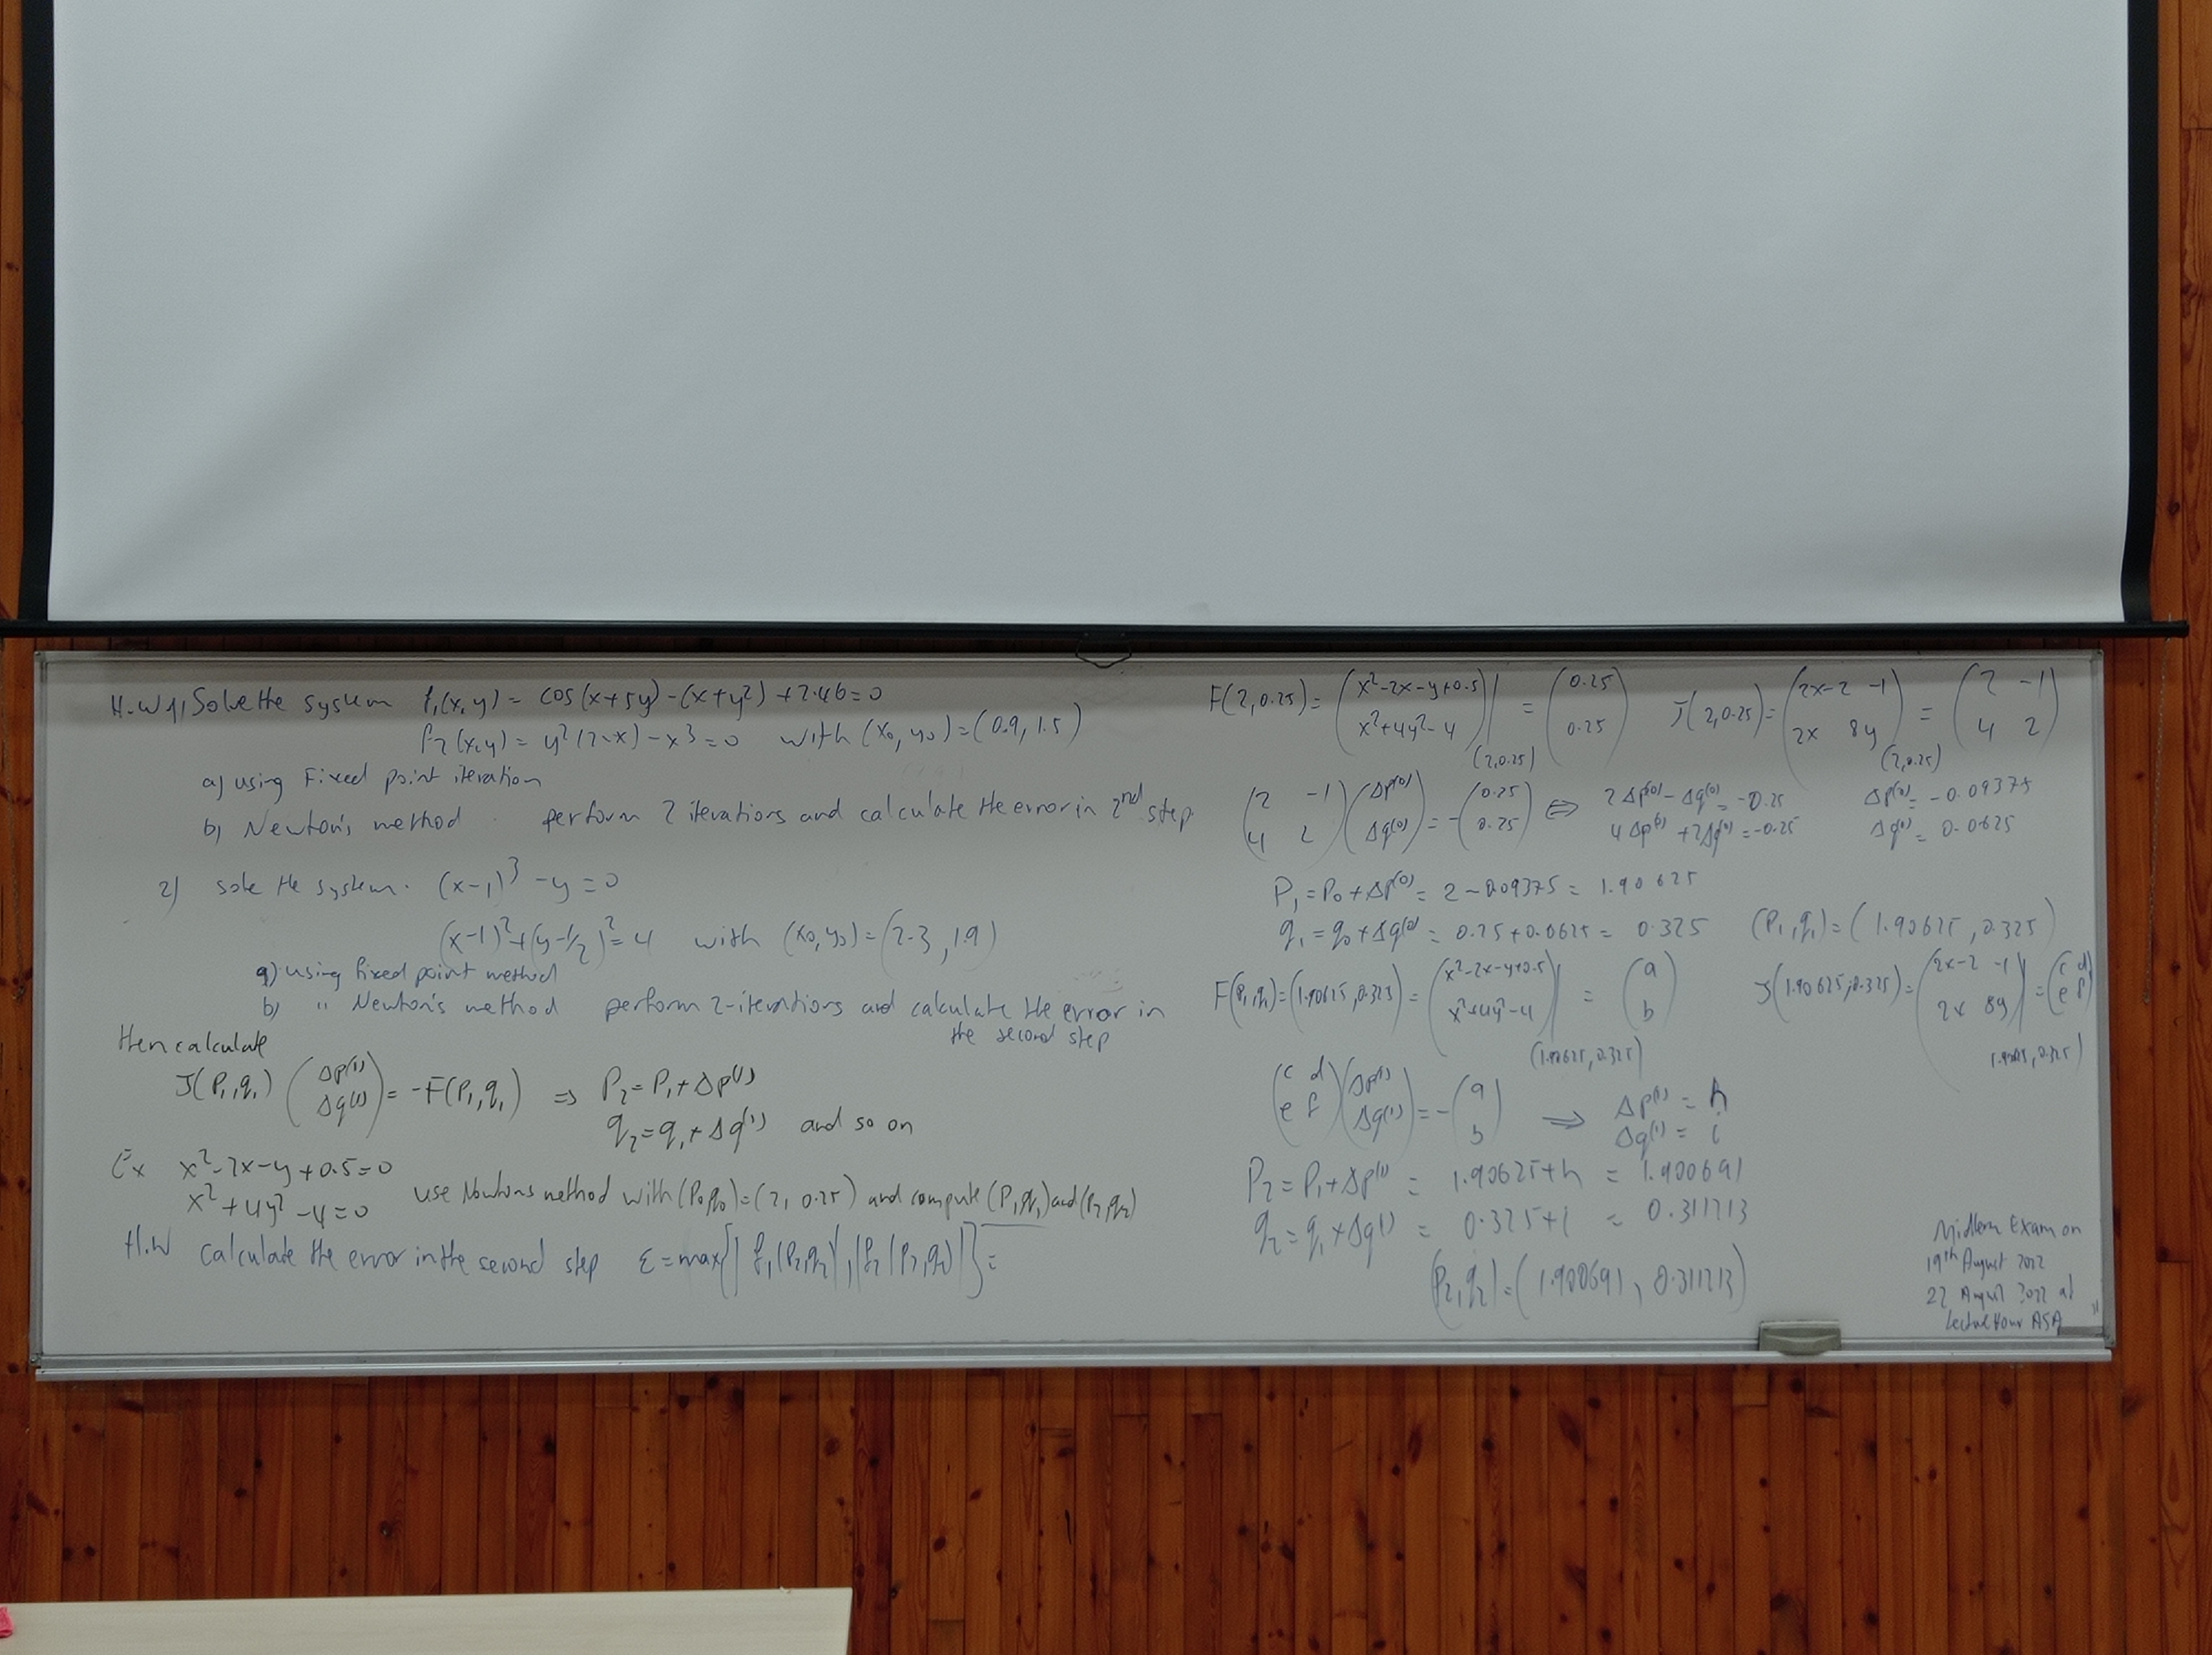 H.W 1, Solve the system f₁(x,y) = cos(x+5y) - (x+y²) + 2.46 = 0
f₂(x,y) = y²(2-x) - x³ = 0 with (x₀, y₀) = (0.9, 1.5)
a) using Fixed point iteration
b) Newton's method perform 2 iterations and calculate the error in 2nd step
2) solve the system. (x-1)³ - y = 0
(x-1)² + (y-1/2)² = 4 with (x₀, y₀) = (2.3, 1.9)
a) using fixed point method
b) " Newton's method perform 2-iterations and calculate the error in
the second step
Hen calculate
J(P₁,q₁) (Δp⁽¹⁾ Δq⁽¹⁾) = -F(P₁,q₁) ⇒ P₂ = P₁ + Δp⁽¹⁾
q₂ = q₁ + Δq⁽¹⁾ and so on
Ex x² - 2x - y + 0.5 = 0
x² + 4y² - 4 = 0 use Newtons method with (P₀,q₀) = (2, 0.25) and compute (P₁,q₁) and (P₂,q₂)
H.W calculate the error in the second step ε = max{|f₁(P₂,q₂)|, |f₂(P₂,q₂)|} =
F(2, 0.25) = (x²-2x-y+0.5 x²+4y²-4)|(2,0.25) = (0.25 0.25) J(2,0.25) = (2x-2 -1 2x 8y)(2,0.25) = (2 -1 4 2)
(2 -1 4 2)(Δp⁽⁰⁾ Δq⁽⁰⁾) = -(0.25 0.25) ⇔ 2Δp⁽⁰⁾ - Δq⁽⁰⁾ = -0.25 Δp⁽⁰⁾ = -0.09375
4Δp⁽⁰⁾ + 2Δq⁽⁰⁾ = -0.25 Δq⁽⁰⁾ = 0.0625
P₁ = P₀ + Δp⁽⁰⁾ = 2 - 0.09375 = 1.90625
q₁ = q₀ + Δq⁽⁰⁾ = 0.25 + 0.0625 = 0.325 (P₁,q₁) = (1.90625, 0.325)
F(P₁,q₁) = (1.90625, 0.325) = (x²-2x-y+0.5 x²+4y²-4)|(1.90625, 0.325) = (a b) J(1.90625, 0.325) = (2x-2 -1 2x 8y)|1.90625, 0.325) = (c d e f)
(c d e f)(Δp⁽¹⁾ Δq⁽¹⁾) = -(a b) ⇒ Δp⁽¹⁾ = h
Δq⁽¹⁾ = i
P₂ = P₁ + Δp⁽¹⁾ = 1.90625 + h = 1.900691
q₂ = q₁ + Δq⁽¹⁾ = 0.325 + i = 0.311213
(P₂,q₂) = (1.900691, 0.311213)
Midterm Exam on
19th August 2022
22 August 2022 at
Lecture Hour ASA